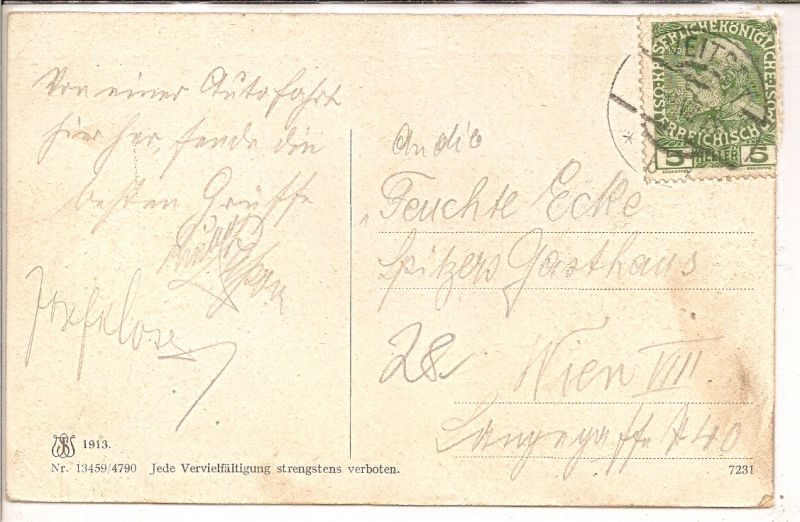 Von einer Autofahrt
hier her, sende die
besten Grüsse
An die
"Feuchte Ecke
Spitzers Gasthaus
28
Wien VIII
Langegasse № 40
KAISERLICHE KÖNIGLICHE ÖSTERREICHISCHE
5 HELLER 5
1913.
Nr. 13459/4790 Jede Vervielfältigung strengstens verboten.
7231